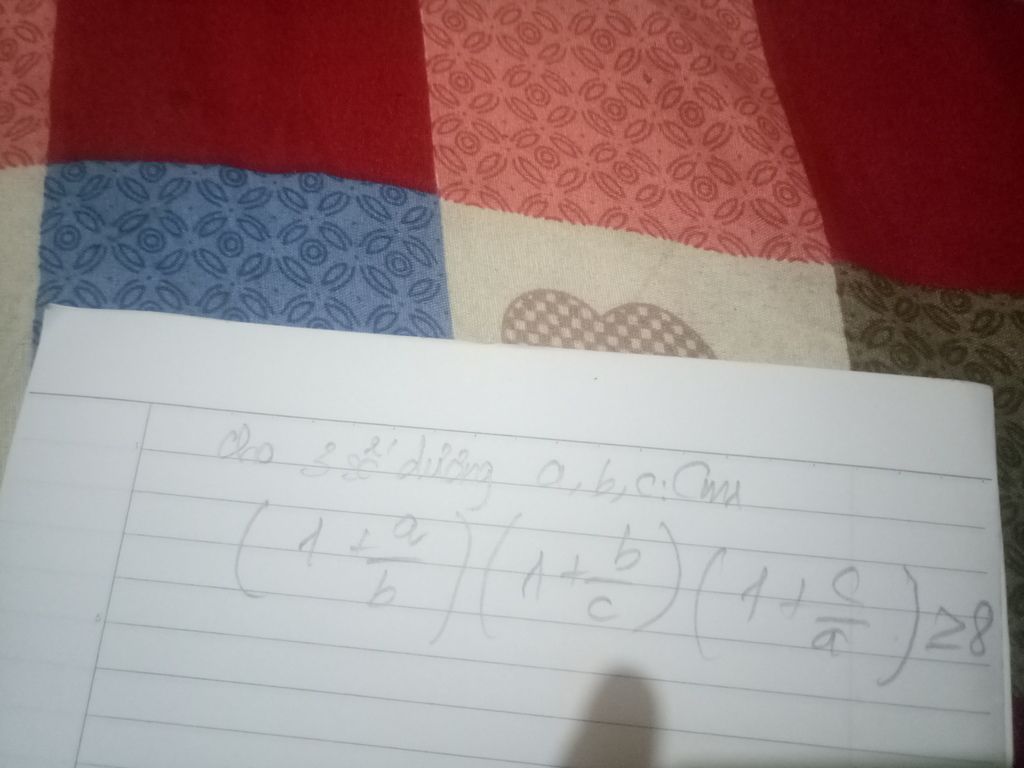 Cho 3 số dương a, b, c. Cmr
(1 + a/b)(1 + b/c)(1 + c/a) ≥ 8